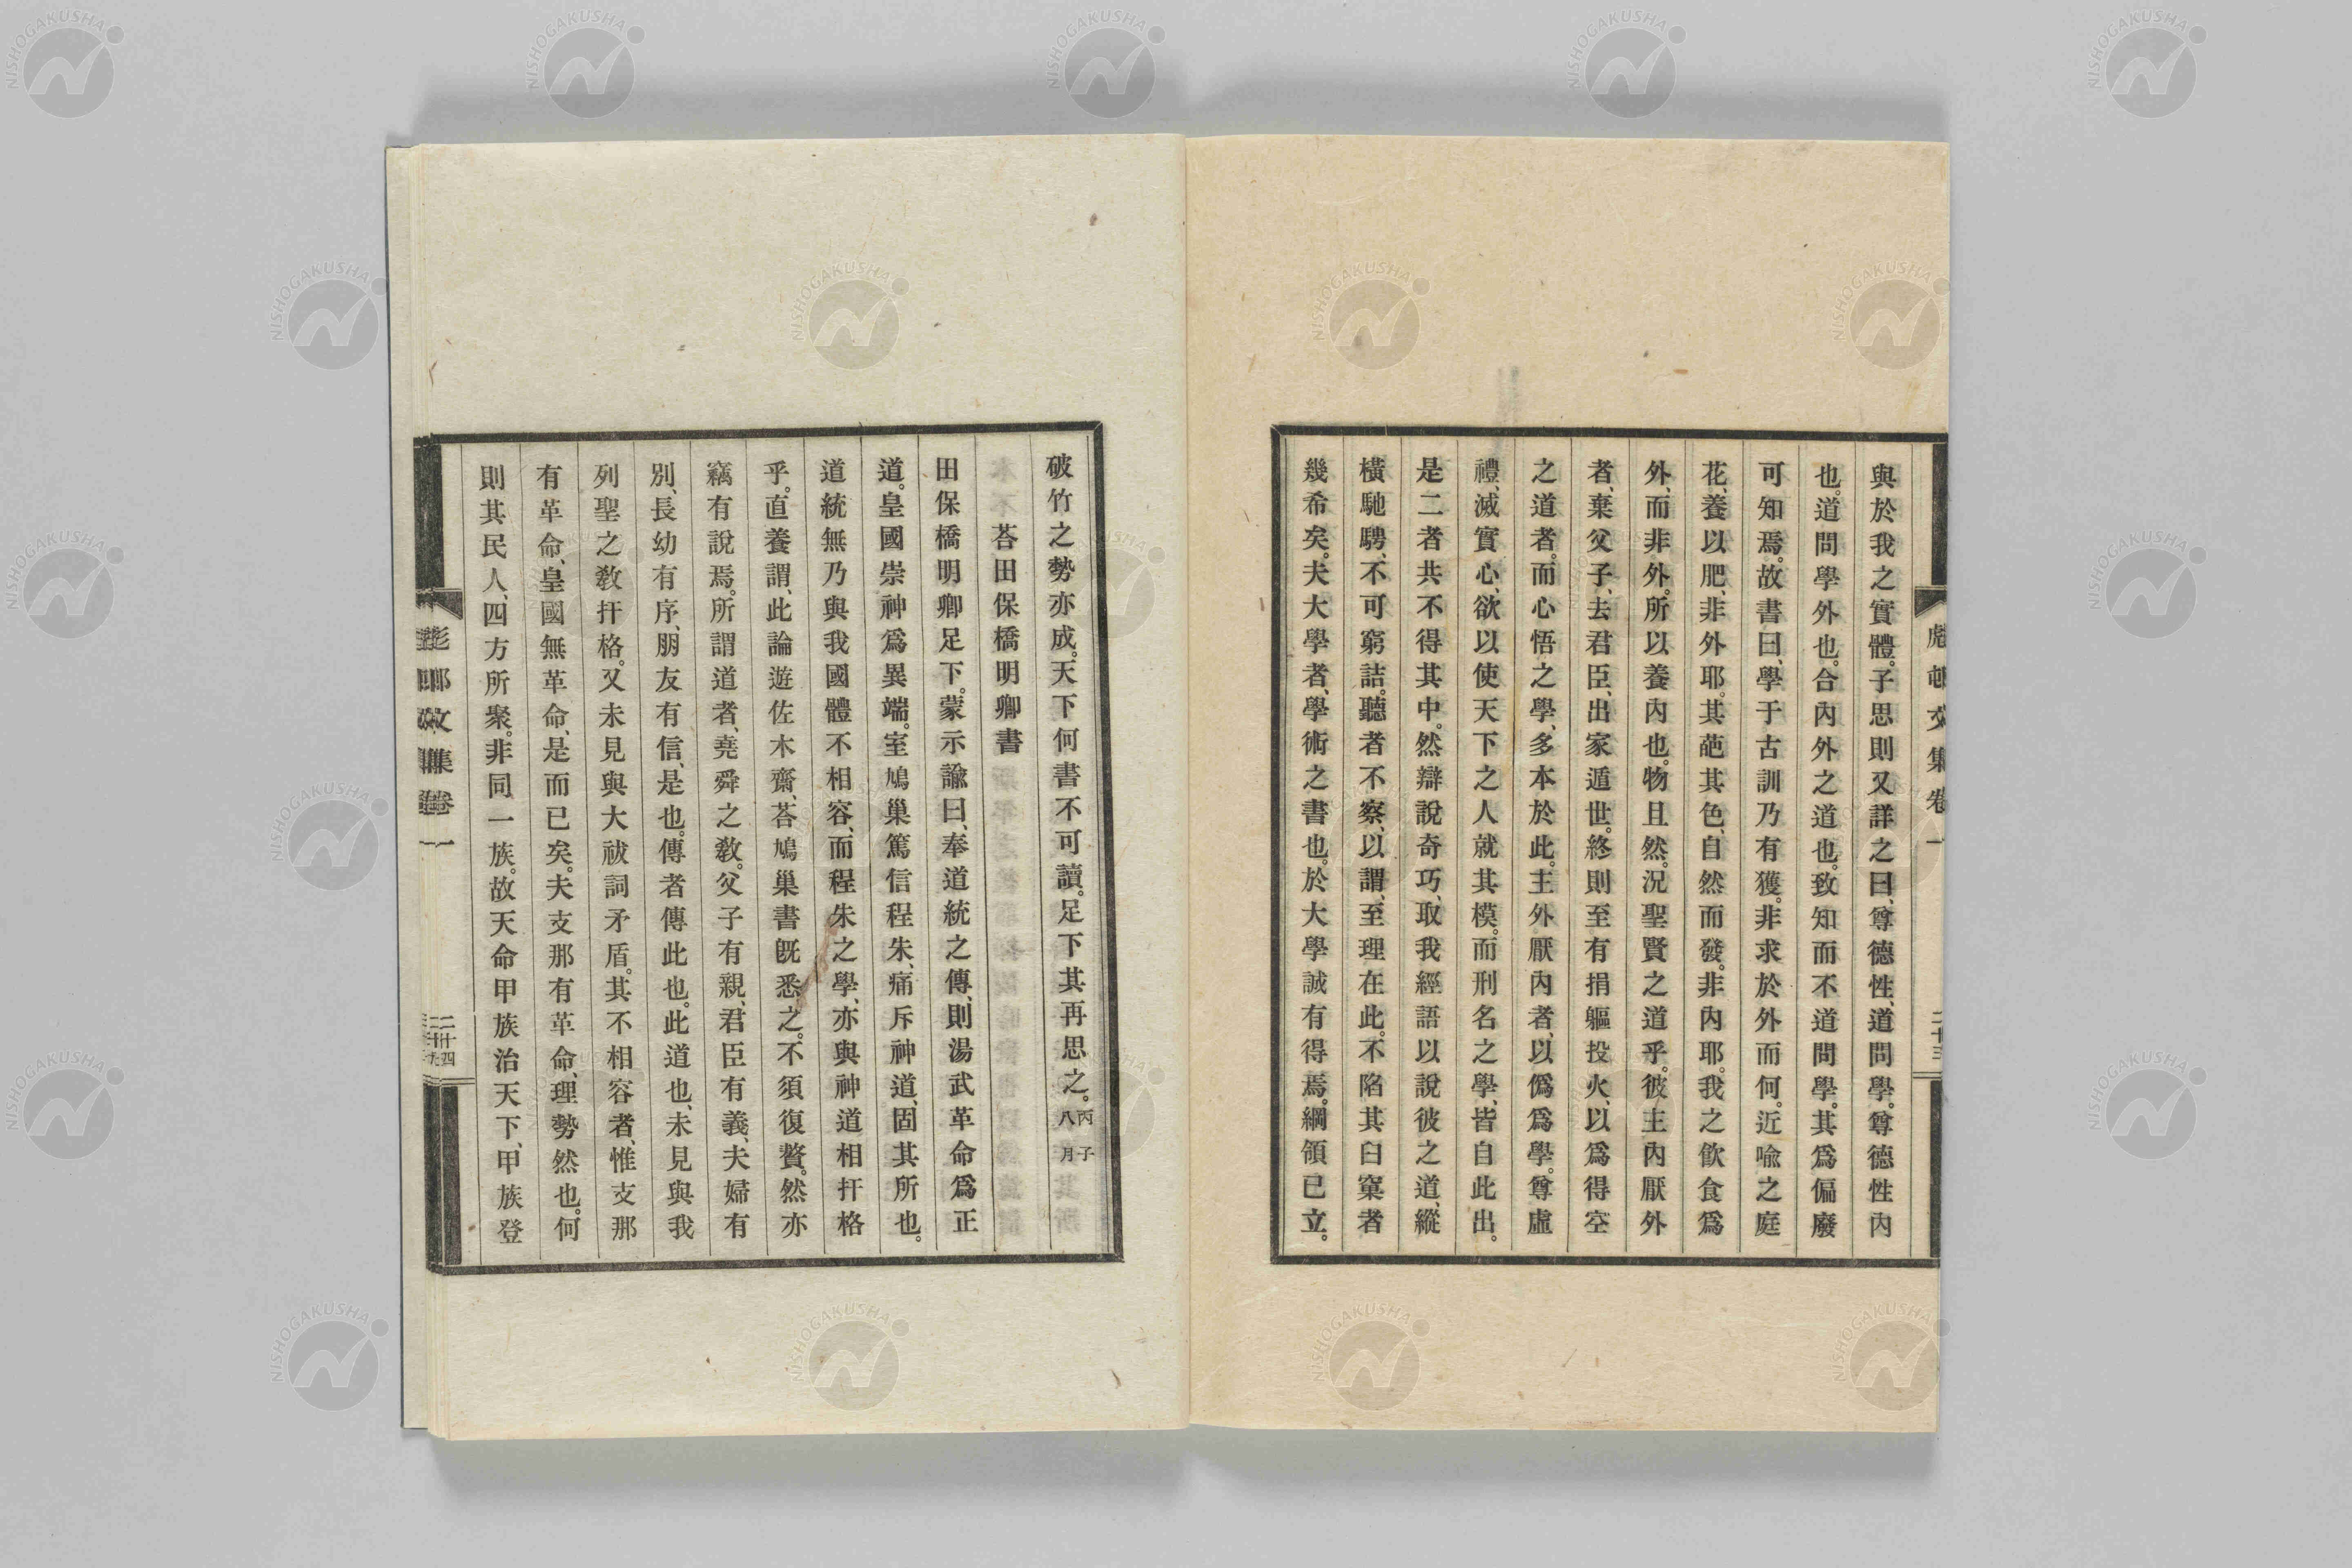 與於我之實體。子思則又詳之曰、尊德性、道問學。尊德性內
也。道問學外也。合內外之道也。致知而不道問學。其爲偏廢
可知焉。故書曰、學于古訓乃有獲。非求於外而何。近喩之庭
花、養以肥、非外耶。其葩其色、自然而發。非內耶。我之飮食爲
外、而非外。所以養內也。物且然。況聖賢之道乎。彼主內厭外
者、棄父子、去君臣、出家遁世。終則至有捐軀投火、以爲得空
之道者。而心悟之學、多本於此。主外厭內者、以僞爲學。尊虛
禮、滅實心、欲以使天下之人就其模。而刑名之學、皆自此出。
是二者共不得其中。然辯說奇巧、取我經語以說彼之道、縱
橫馳騁、不可窮詰。聽者不察、以謂、至理在此。不陷其臼窠者
幾希矣。夫大學者、學術之書也。於大學誠有得焉。綱領已立。
文集卷一
二十三
破竹之勢亦成。天下何書不可讀。足下其再思之。丙子八月
荅田保橋明卿書
田保橋明卿足下。蒙示諭曰、奉道統之傳、則湯武革命爲正
道。皇國崇神爲異端。室鳩巢篤信程朱、痛斥神道、固其所也。
道統無乃與我國體不相容、而程朱之學、亦與神道相扞格
乎。直養謂、此論遊佐木齋、荅鳩巢書旣悉之。不須復贅。然亦
竊有說焉。所謂道者、堯舜之敎。父子有親、君臣有義、夫婦有
別、長幼有序、朋友有信、是也。傳者傳此也。此道也、未見與我
列聖之敎扞格。又未見與大祓詞矛盾。其不相容者、惟支那
有革命、皇國無革命、是而已矣。夫支那有革命、理勢然也。何
則其民人、四方所聚。非同一族。故天命甲族治天下、甲族登
文集卷一
二十四
NISHOGAKUSHA